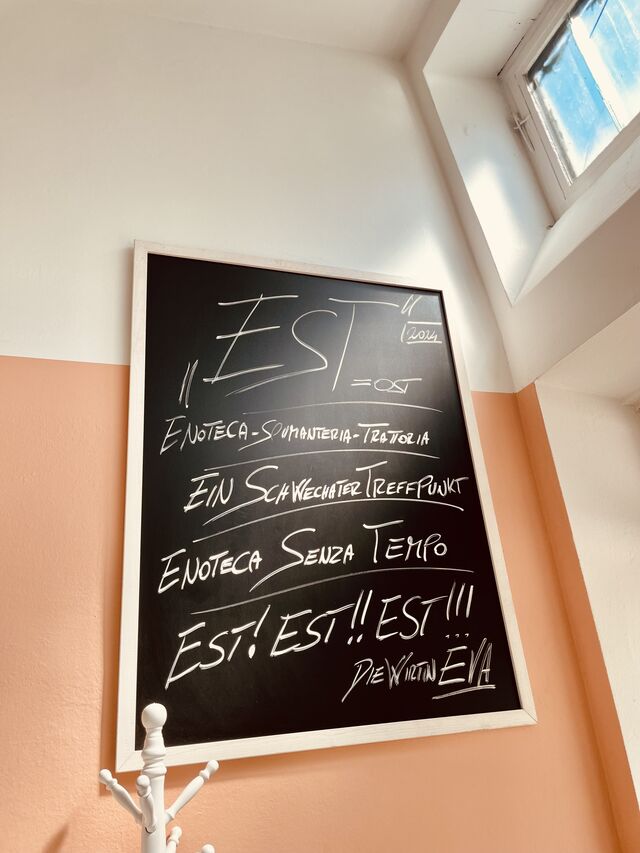 „EST"
2024
=OST
ENOTECA-SPUMANTERIA-TRATTORIA
EIN SCHWECHATER TREFFPUNKT
ENOTECA SENZA TEMPO
EST! EST!! EST!!!
DIE WIRTIN EVA